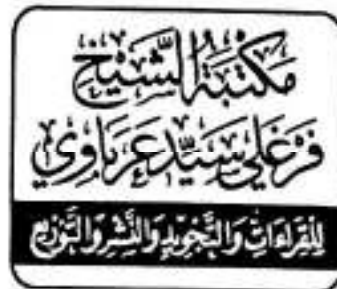 مَكْتَبَةُ الشَّيْخِ
فَرْغَلِي سَيِّد عَرَبَاوِي
لِلْقِرَاءَاتِ وَالتَّجْوِيدِ وَالنَّشْرِ وَالتَّوْزِيعِ